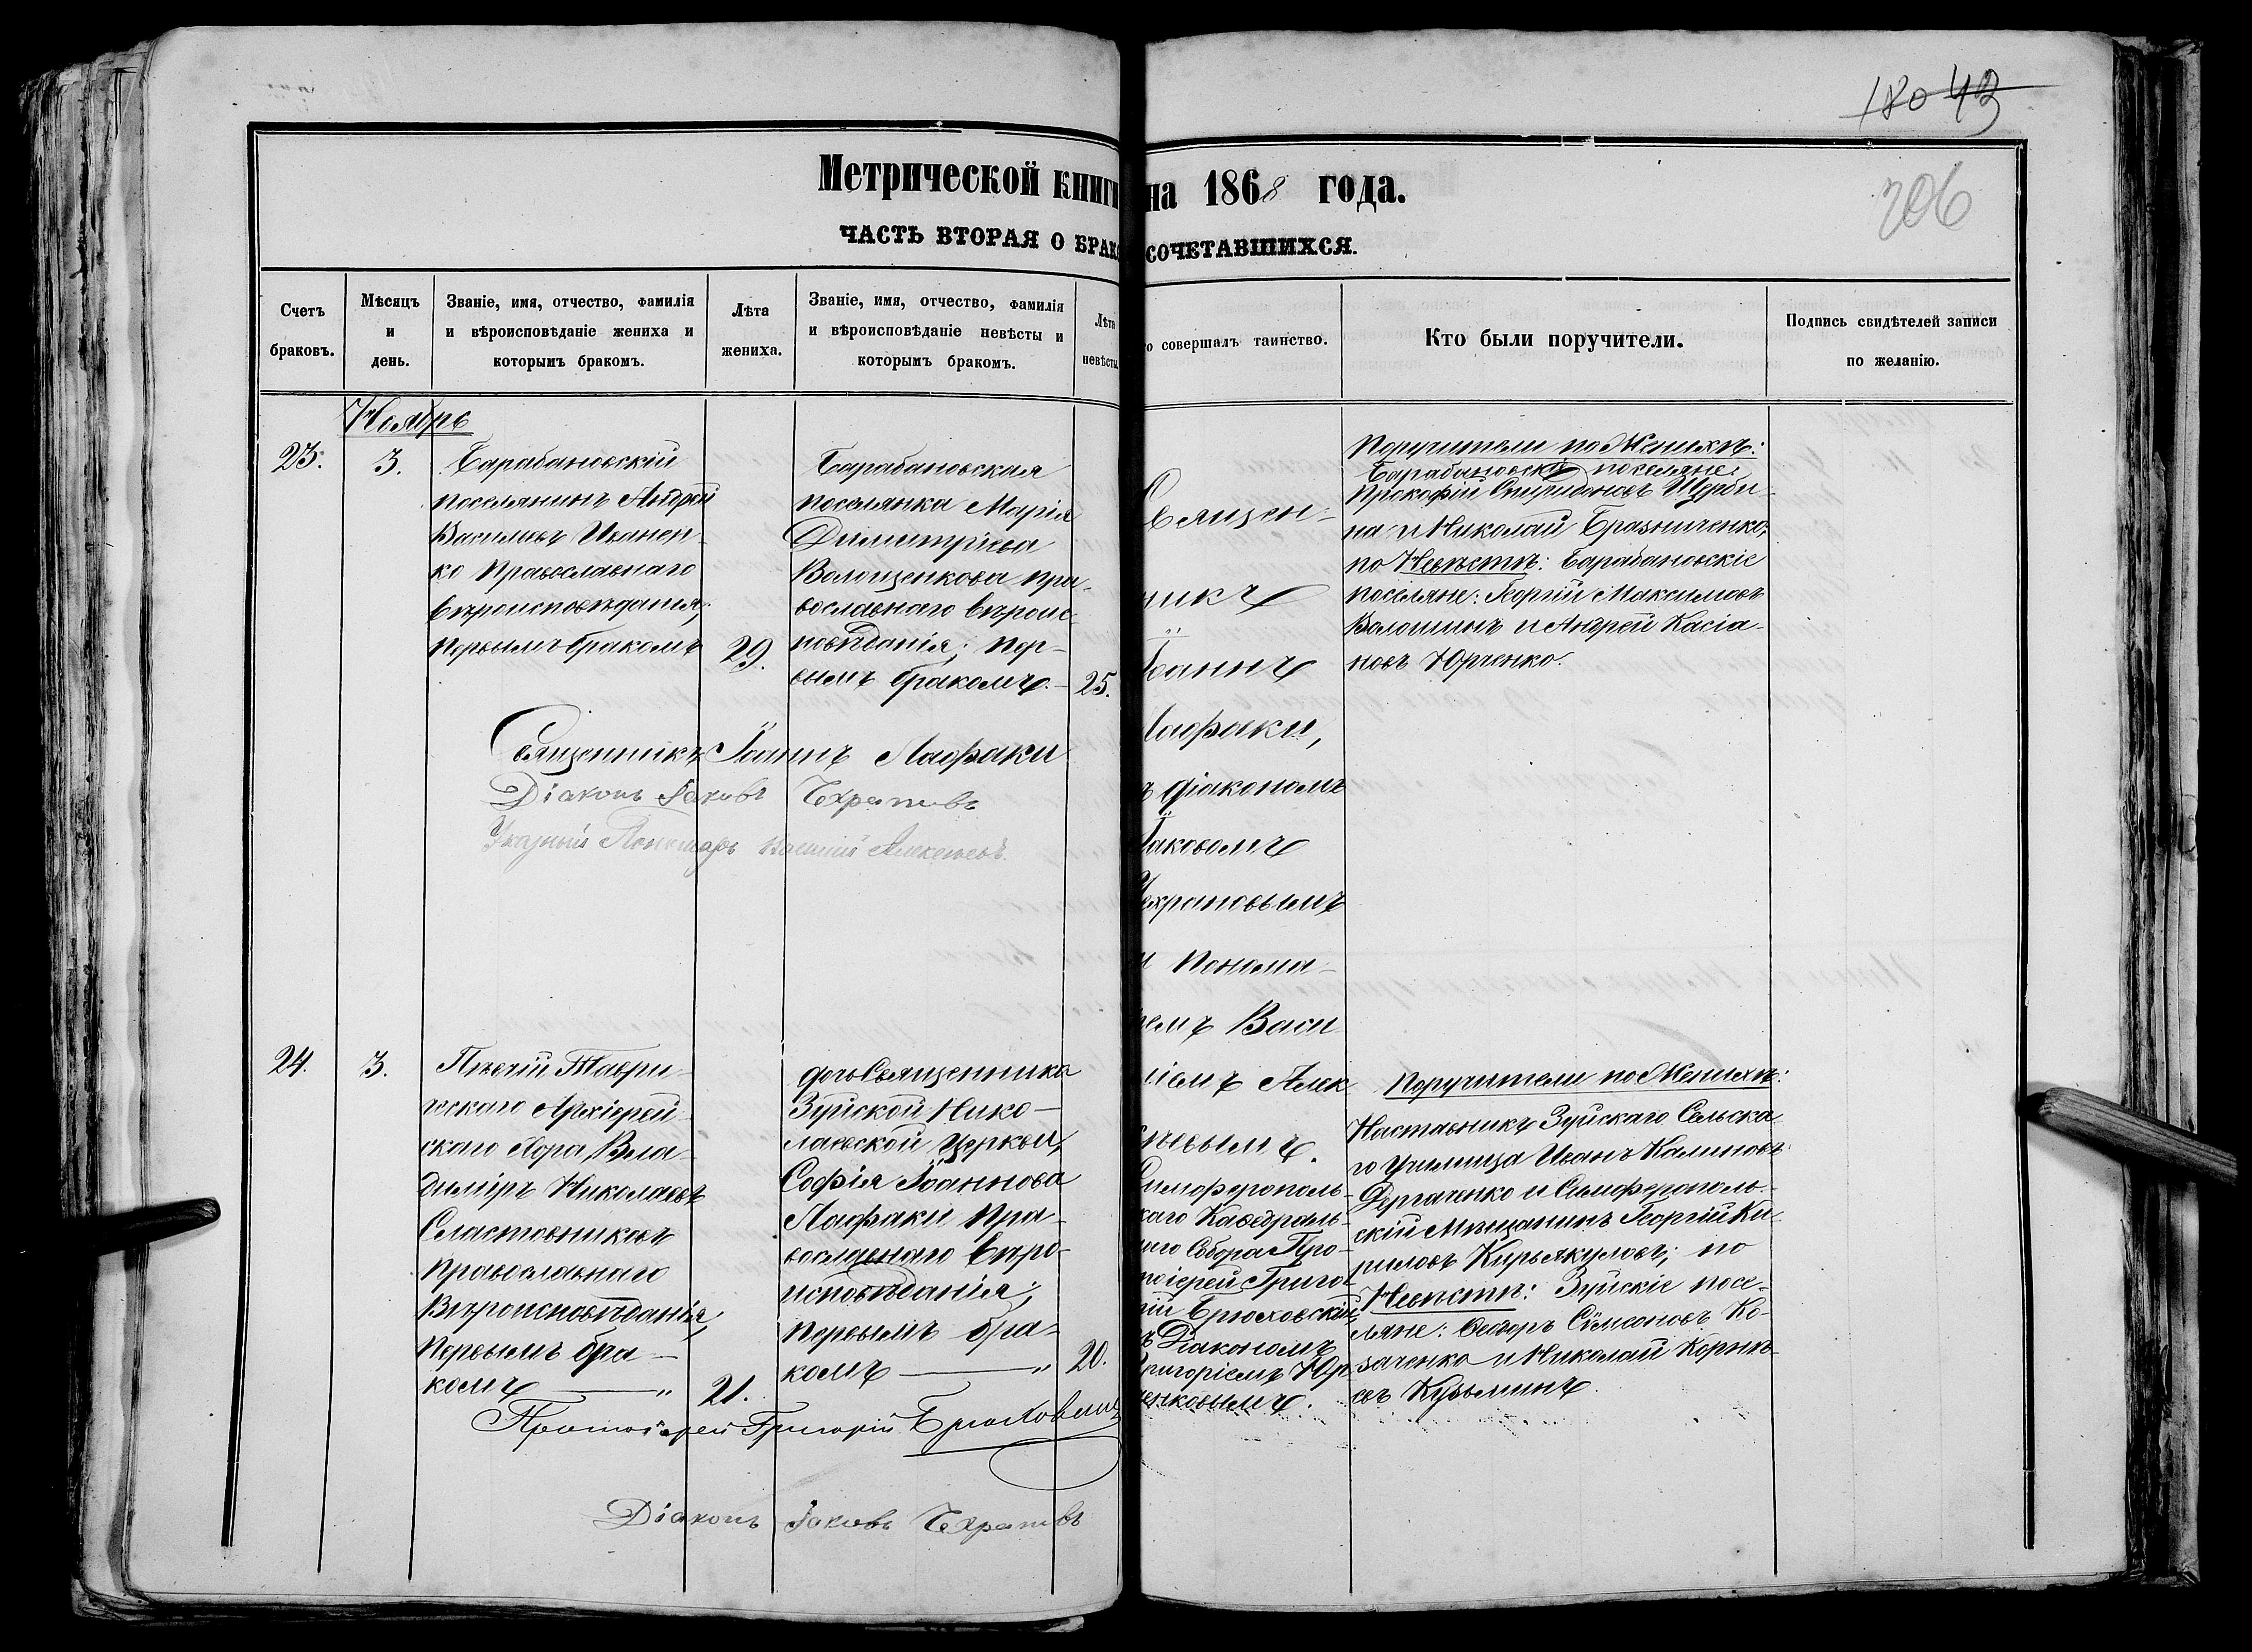 180 43
206
Метрической книги на 1868 года.
ЧАСТЬ ВТОРАЯ О БРАКОСОЧЕТАВШИХСЯ.
Счетъ
браковъ.
Мѣсяцъ
и
день.
Званіе, имя, отчество, фамилія
и вѣроисповѣданіе жениха и
которымъ бракомъ.
Лѣта
жениха.
Званіе, имя, отчество, фамилія
и вѣроисповѣданіе невѣсты и
которымъ бракомъ.
Лѣта
невѣсты
о совершалъ таинство.
Кто были поручители.
Подпись свидѣтелей записи
по желанію.
Ноябрь
23.
3.
Барабановскій
поселянинъ Андрей
Васильевъ Иванен-
ко православнаго
вѣроисповѣданія;
первымъ бракомъ
29.
Барабановская
поселянка Марія
Димитріева
Волощенкова пра-
вославнаго вѣроис-
повѣданія; пер-
вымъ бракомъ.
25.
Священ-
никъ
Іоаннъ
Лафаки,
ъ діакономъ
Іаковомъ
Чехрановымъ
и понома-
ремъ Васи
ліемъ Алек
сѣевымъ.
Поручители по Женихѣ:
Барабановскіе поселяне:
Прокофій Спиридоновъ Щерби-
на и Николай Бразниченко;
по Невѣстѣ: Барабановскіе
поселяне: Георгій Максимовъ
Волошинъ и Андрей Касіа-
новъ Юрченко.
Священникъ Іоаннъ Лафаки
Діаконъ Іаковъ Чехрановъ
Указный Пономарь Василій Алексѣевъ.
24.
3.
Пѣвчій Таври-
ческаго Архіерей-
скаго хора, Вла-
димiръ Николаевъ
Сластовниковъ
православнаго
Вѣроисповѣданія,
первымъ бра-
комъ
21.
дочь Священника
Зуйской Нико-
лаевской церкви,
Софія Іоаннова
Лафаки пра-
вославнаго вѣро-
исповѣданія;
первымъ бра-
комъ
20.
Симферополь-
скаго Каѳедраль-
наго Собора Про-
тоіерей Григо-
рій Брюховскій,
ъ Діакономъ
Григоріемъ Юр
ченковымъ.
Поручители по Женихѣ:
Наставникъ Зуйскаго Сельска-
го училища Иванъ Калиновъ
Дергаченко и Симферополь-
скій Мѣщанинъ Георгій Ки-
риловъ Кирьякуловъ; по
Невѣстѣ: Зуйскіе посе-
ляне: Ѳеодоръ Сѵмеоновъ Ко-
заченко и Николай Корнѣ-
евъ Кузьминъ.
Протоіерей Григорій Брюховскій
Діаконъ Іаковъ Чехрановъ